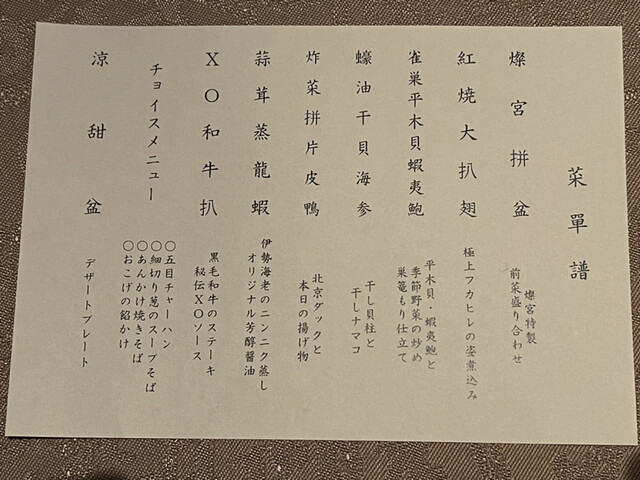 菜單譜
燦宮拼盆
燦宮特製
前菜盛り合わせ
紅焼大扒翅
極上フカヒレの姿煮込み
雀巣平木貝蝦夷鮑
平木貝・蝦夷鮑と
季節野菜の炒め
巣篭もり仕立て
蠔油干貝海参
干し貝柱と
干しナマコ
炸菜拼片皮鴨
北京ダックと
本日の揚げ物
蒜茸蒸龍蝦
伊勢海老のニンニク蒸し
オリジナル芳醇醤油
XO和牛扒
黒毛和牛のステーキ
秘伝XOソース
チョイスメニュー
〇五目チャーハン
〇細切り葱のスープそば
〇あんかけ焼きそば
〇おこげの餡かけ
涼甜盆
デザートプレート